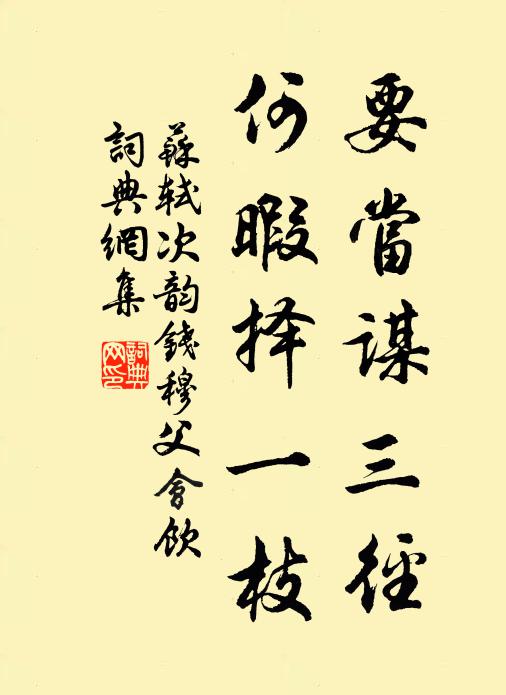 要當谋三徑
何暇择一枝
蘇轼次韵錢穆父會飲
詞典網集
詞典网印